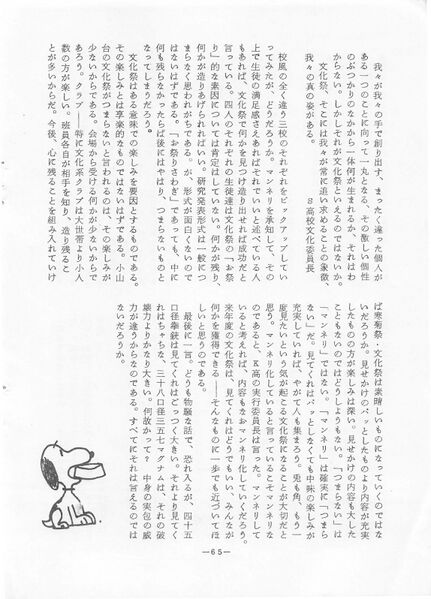 我々が我々の手で創り出す、まったく違った個人が
ある一つのことに向って一丸となる、その激しい個性
のぶつかりのなかから一体何が生まれるか、それはわ
からない。しかしそれが文化祭といえるのではないか。
文化祭、そこには我々が常に追い求めることの象徴、
我々の真の姿がある。
S高校文化委員長
校風の全く違う三校のそれぞれをピックアップしてい
ってみたが、どうだろうか。マンネリを承知して、その
上で生徒の満足感さえあればそれでいいと述べている人
もあれば、文化祭で何かを見つけ造り出せれば成功だと
言っている。四人のそれぞれの生徒達は文化祭の「お祭
り」的な素因については肯定はしていない。何かが残り、
何かが造りあげられればいい。研究発表形式は一般につ
まらなく思われがちである。が、形式が面白くないので
はないはずである。「お祭りさわぎ」であっても、中に
何も残らなかったら後にはやはり、つまらないものと
なってしまうだろう。
文化祭はある意味での楽しみを要因とするものである。
その楽しみとは享楽的なものではないはずである。小山
台の文化祭がつまらないと言われるのは、その楽しみが
少ないからである。会場から受ける何かが少ないからで
あろう。クラブ──特に文化系クラブは大世帯より小人
数の方が楽しい。班員各自が相手を知り、造り残るこ
とが多いからだ。今後、心に残ることを組み入れていけ
ば寒菊祭・文化祭は素晴しいものになっていくのではな
いだろうか。見せかけのパッとしたものより内容が充実
したものの方が楽しみは深い。見せかけの内容も大した
こともないのではどうしようもない。「つまらない」は
「マンネリ」ではない。「マンネリ」は確実に「つまら
ない」だ。見てくれはパッとしなくても中味の楽しみが
充実していれば、やがて人も集まろう。兎も角、もう一
度見たいという気が起こる文化祭になることが大切だと
思う。マンネリ化していると言っているこそマンネリな
のであると、K高の実行委員長は言った。マンネリして
いると考えれば、内容もなおマンネリ化していくだろう。
来年度の文化祭は、見てくれはどうでもいい、みんなが
何かを獲得できる──そんなものに一歩でも近づいてほ
しいと思うのである。
最後に一言。どうも物騒な話で、恐れ入るが、四十五
口径拳銃は見てくれはごっつく大きい。それより見てく
れはちゃちな、三十八口径三五七マグナムは、それの破
壊力よりかなり大きい。何故かって?　中身の実包の威
力が違うからなのである。すべてにそれは言えるのでは
ないだろうか。
—65—